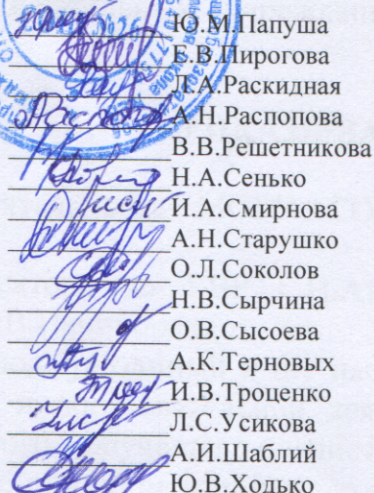 Ю.М.Папуша
Е.В.Пирогова
Л.А.Раскидная
А.Н.Распопова
В.В.Решетникова
Н.А.Сенько
И.А.Смирнова
А.Н.Старушко
О.Л.Соколов
Н.В.Сырчина
О.В.Сысоева
А.К.Терновых
И.В.Троценко
Л.С.Усикова
А.И.Шаблий
Ю.В.Ходько